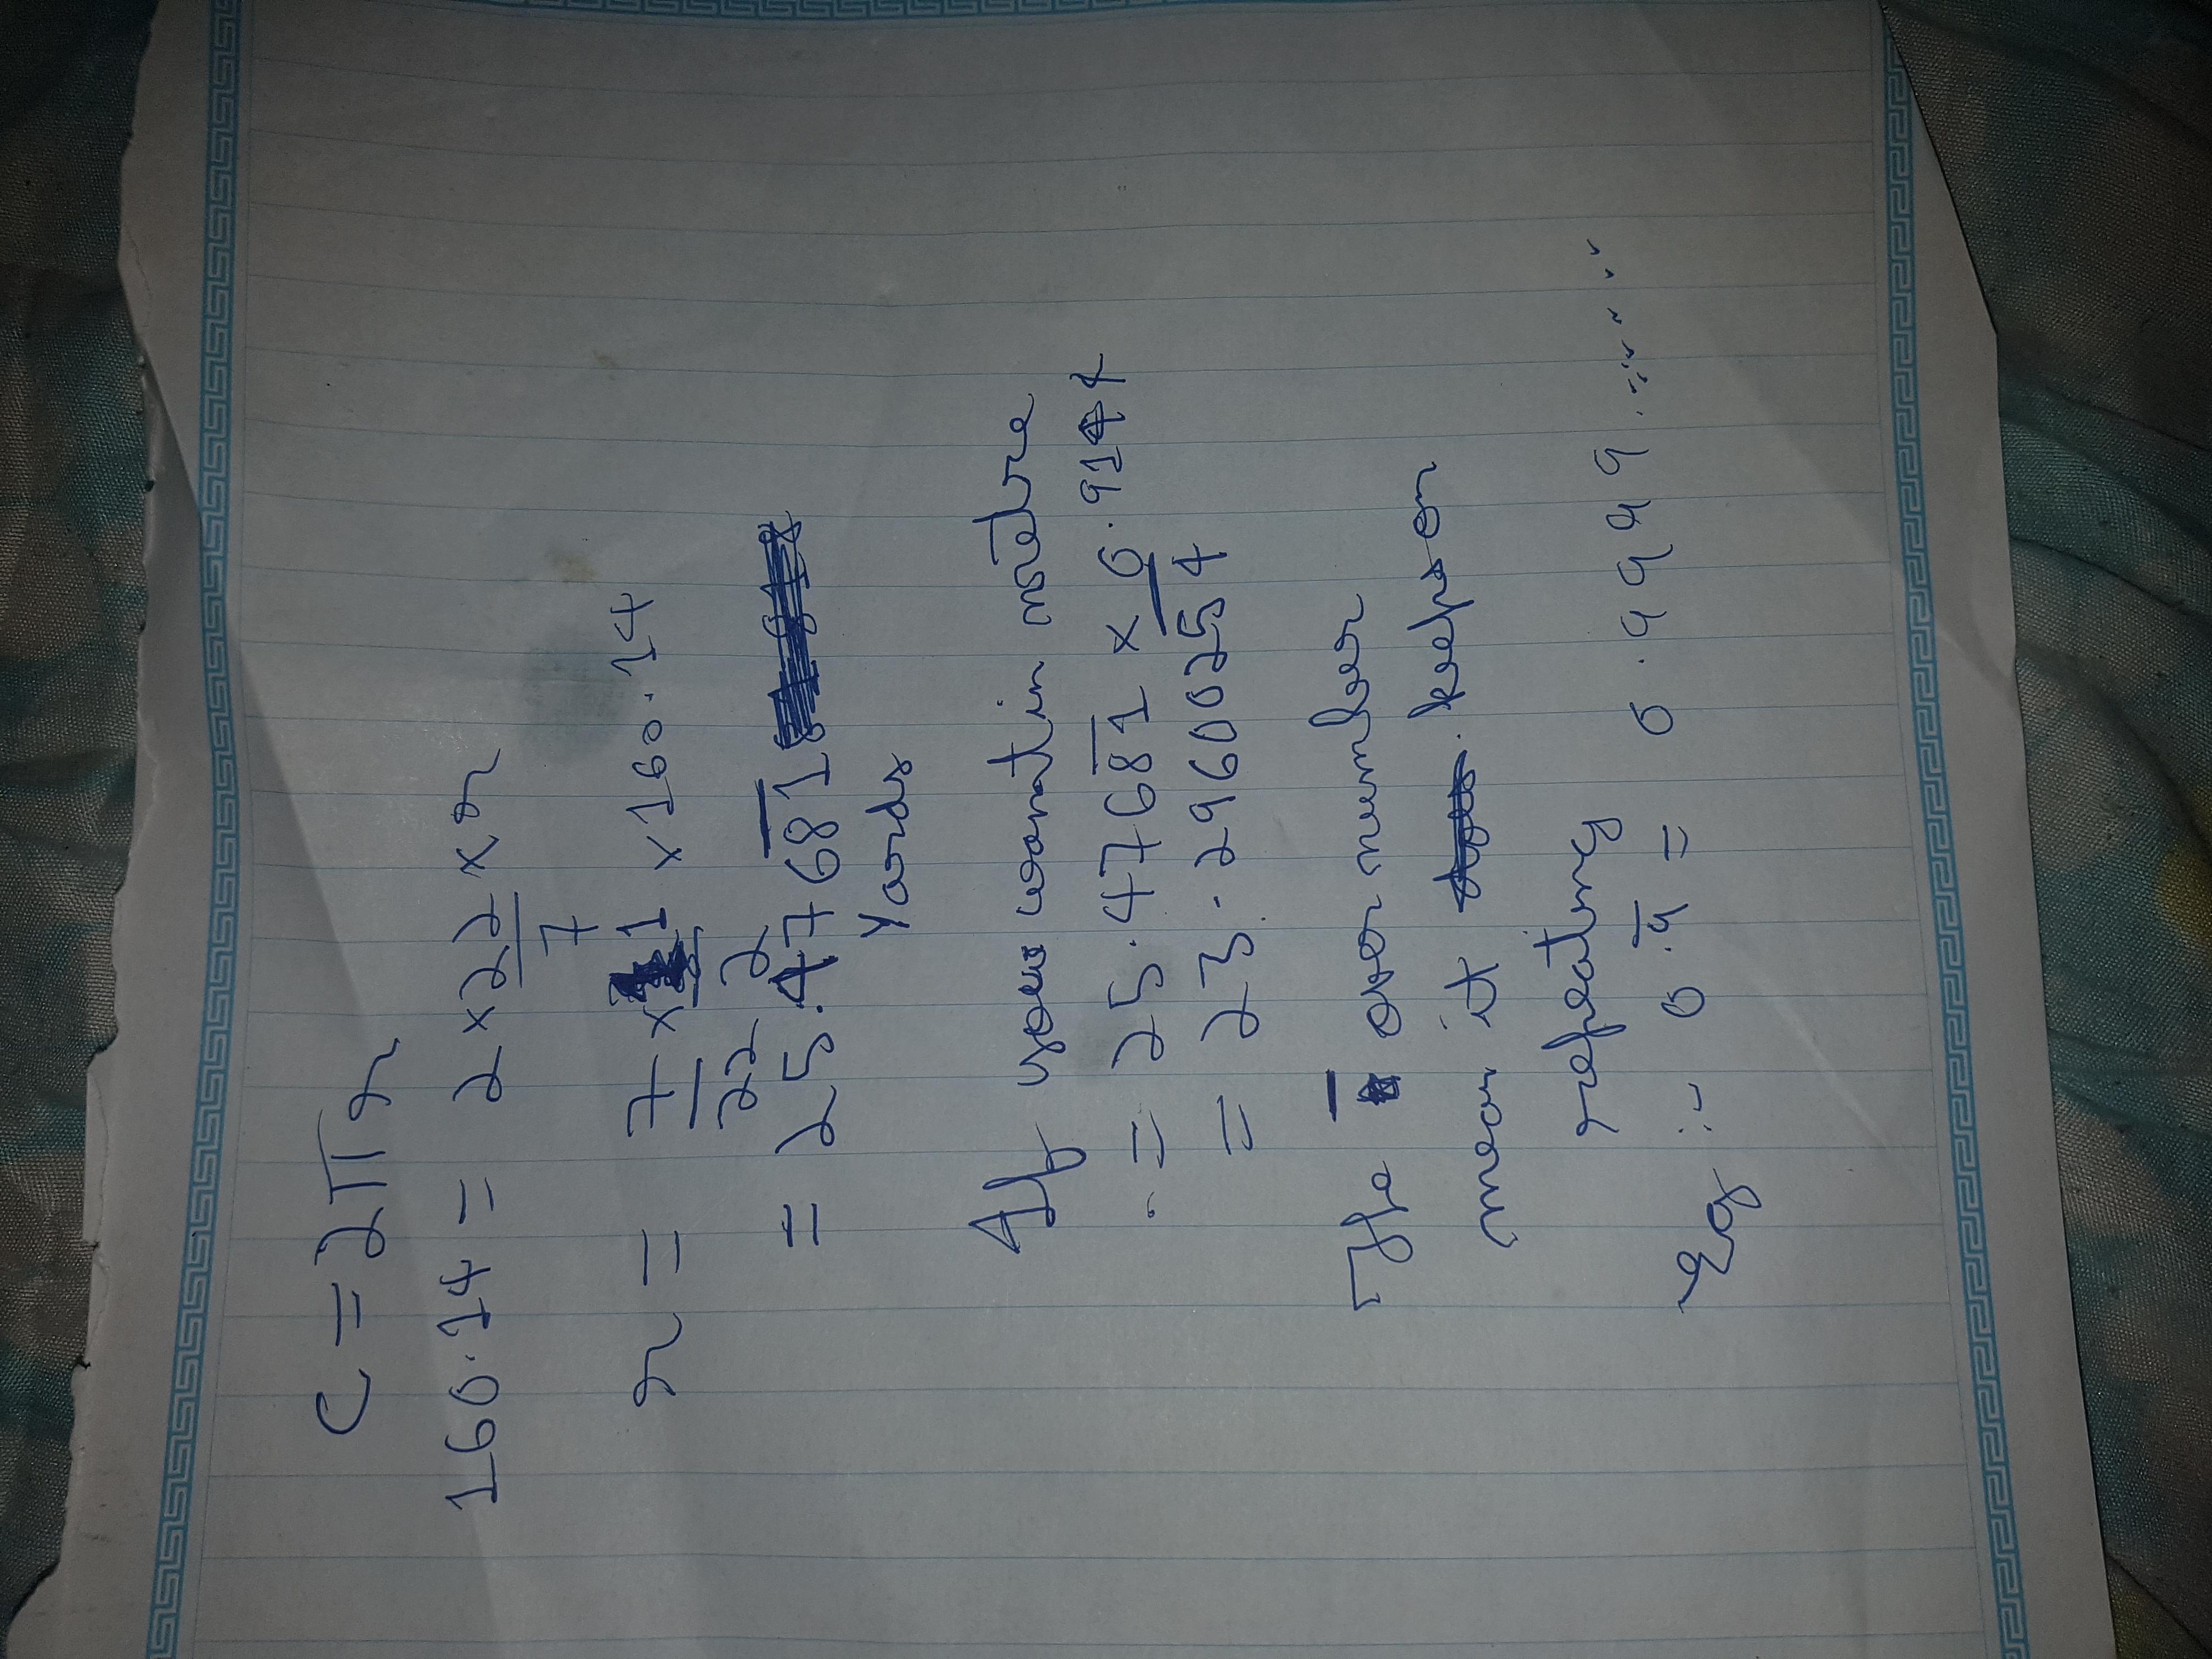 C = 2πr
160.14 = 2 × 22/7 × r
r = 7/22 × 1/2 × 160.14
= 25.4768̅1̅
Yards
If you want in metre
= 25.4768̅1̅ × 0.9144
= 23.2960025̅4̅
The ‾ over number
mean it keeps on
repeating
Eg :- 0.9̅ = 0.9999......